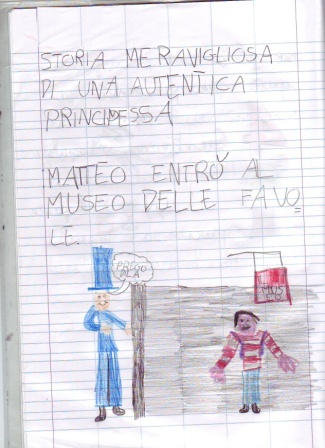 STORIA MERAVIGLIOSA
DI UNA AUTENTICA
PRINCIPESSA
MATTEO ENTRÒ AL
MUSEO DELLE FAVO
LE.
PREGO
MUS
EO